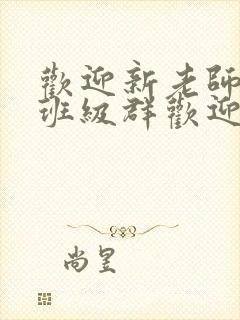 歡迎新老師
班級群歡迎
尚昱